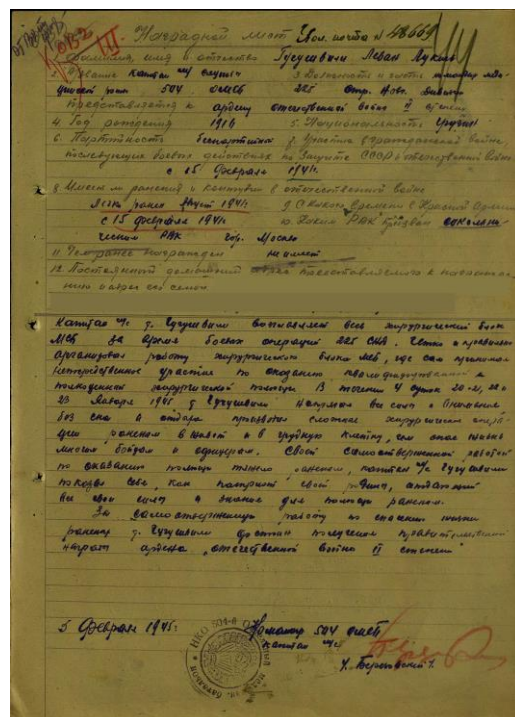 Наградной лист Пол. почта N 48669
Фамилия, имя и отчество Гугушвили Леван
1. Звание капитан м/с 3. Должность и часть командир
роты 504 ОМСБ 225 Стр. Дивизии
представляется к ордену отечественной войны II степени
4. Год рождения 1916 5. Национальность Грузин
6. Партийность беспартийный 7. Участие в гражданской войне
последующих боевых действиях по защите СССР в отечественной войне
с 15 февраля 1941.
8. Имеет ли ранения и контузии в отечественной войне
Легко ранен Август 1941. 9. С какого времени в Красной Армии
с 15 февраля 1941. 10. Каким РВК призван
РВК гор. Москва
11. Чем ранее награжден не имеет
12. Постоянный домашний адрес представляемого к награжде-
нию и адрес его семьи
Капитан м/с т. Гугушвили возглавляет весь хирургический блок
МСБ за время боевых операций 225 СКД. Четко и правильно
организовал работу хирургического блока МСБ, где сам принимал
непосредственное участие по оказанию квалифицированной и
хирургической помощи. В течении 4 суток 20-21, 22 и
23 Января 1945 т. Гугушвили
без сна и отдыха производил сложные хирургические опера-
ции раненым в живот и в грудную клетку, чем спас жизнь
многим бойцам и офицерам. Своей самоотверженной работой
по оказанию помощи тяжело раненым, капитан м/с Гугушвили
показал себя, как патриот своей родины, отдающий
все свои силы и знания для помощи раненым.
За самоотверженную работу по спасению жизни
раненых т. Гугушвили достоин получения правительственной
награды ордена „отечественной войны II степени"
5 Февраля 1945г. Командир 504 ОМСБ
капитан м/с
НКО 504-й